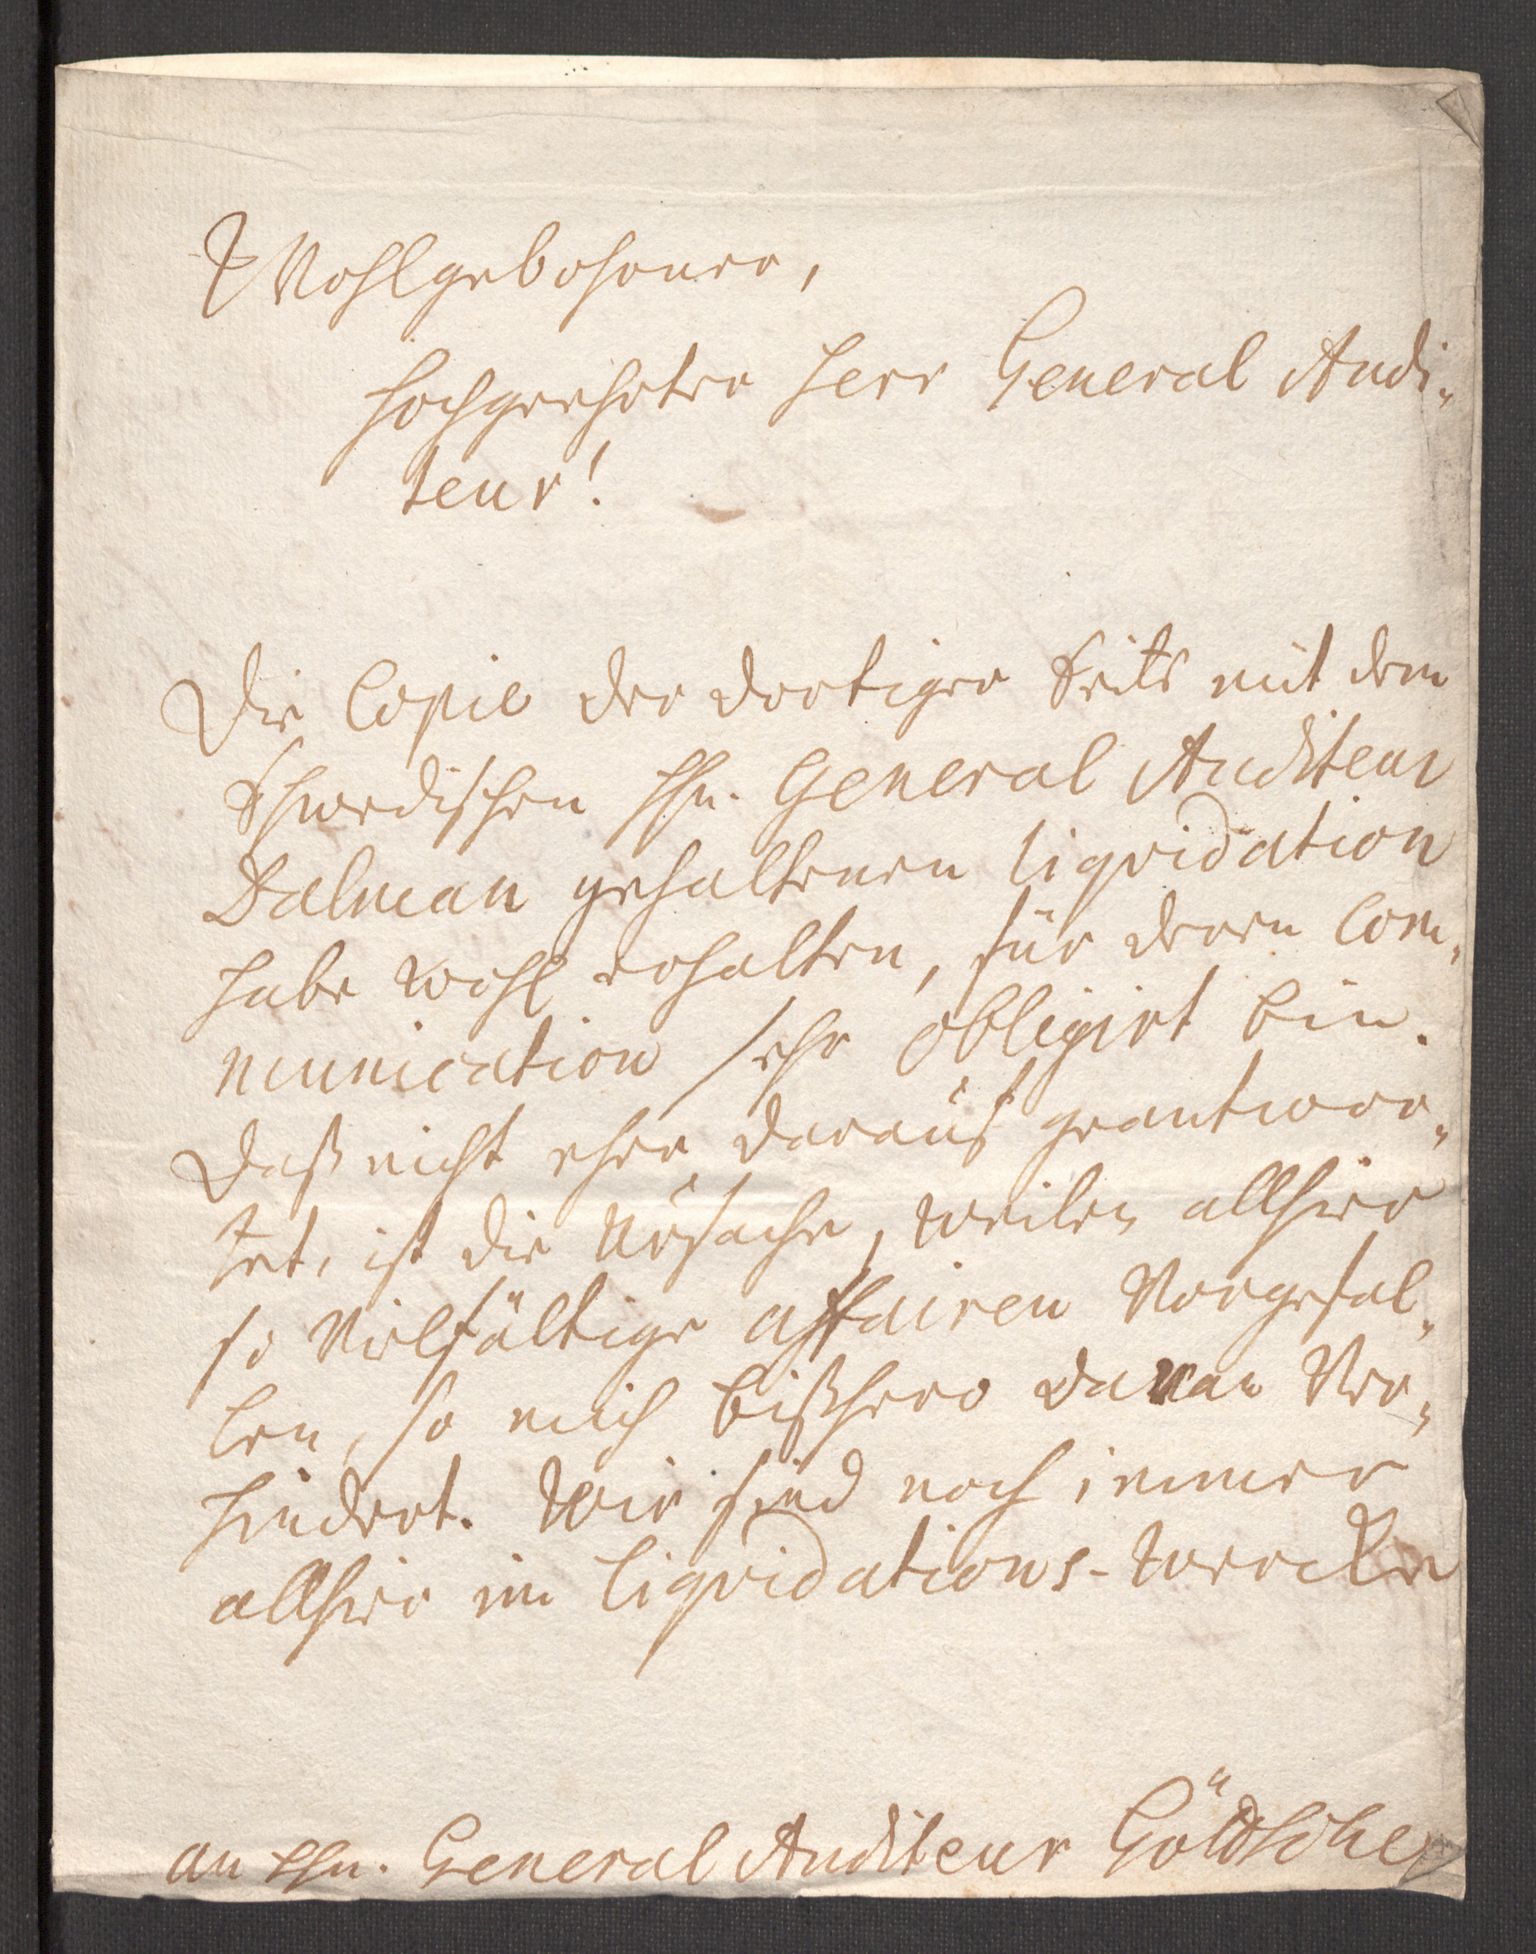 Wohlgebohrner,
Hochgeehrter Herr General Audi-
teur!
Die Copie der dortiger Seits mit dem
Schwedischen Hn. General Auditeur
Dalman gehaltenen liqvidation
habe wohl erhalten, für deren Com-
munication sehr obligirt bin.
Daß nicht eher darauf geantwor-
tet, ist die Ursache, weilen allhier
so vielfältige affairen vorgefal-
len, so mich bißhero daran ver-
hindert. Wir sind noch immer
allhier im liqvidations-wercke
an Hn. General Auditeur